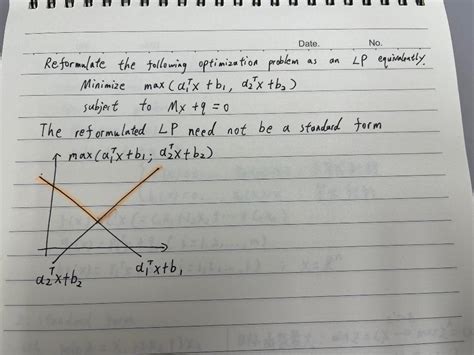 Date. No.
Reformulate the following optimization problem as an LP equivalently.
Minimize max(a₁ᵀx + b₁, a₂ᵀx + b₂)
subject to Mx + q = 0
The reformulated LP need not be a standard form
max(a₁ᵀx + b₁; a₂ᵀx + b₂)
a₂ᵀx + b₂ a₁ᵀx + b₁